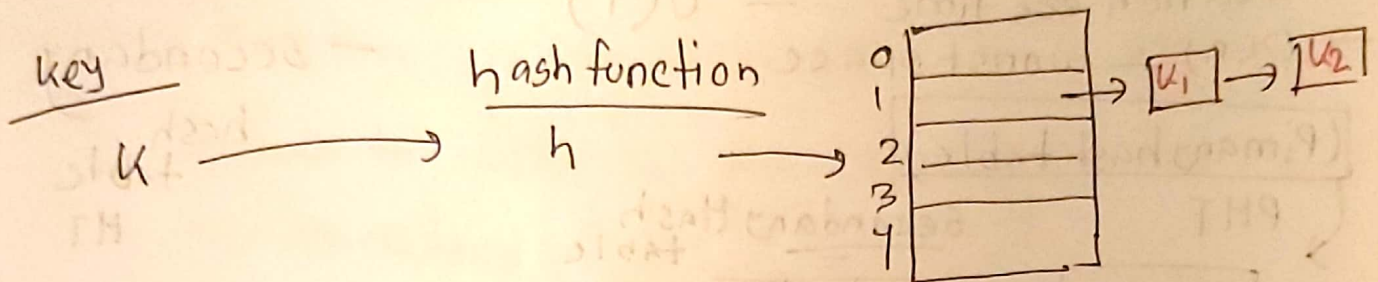 key
hash function
K
h
0
1
2
3
4
K1
K2